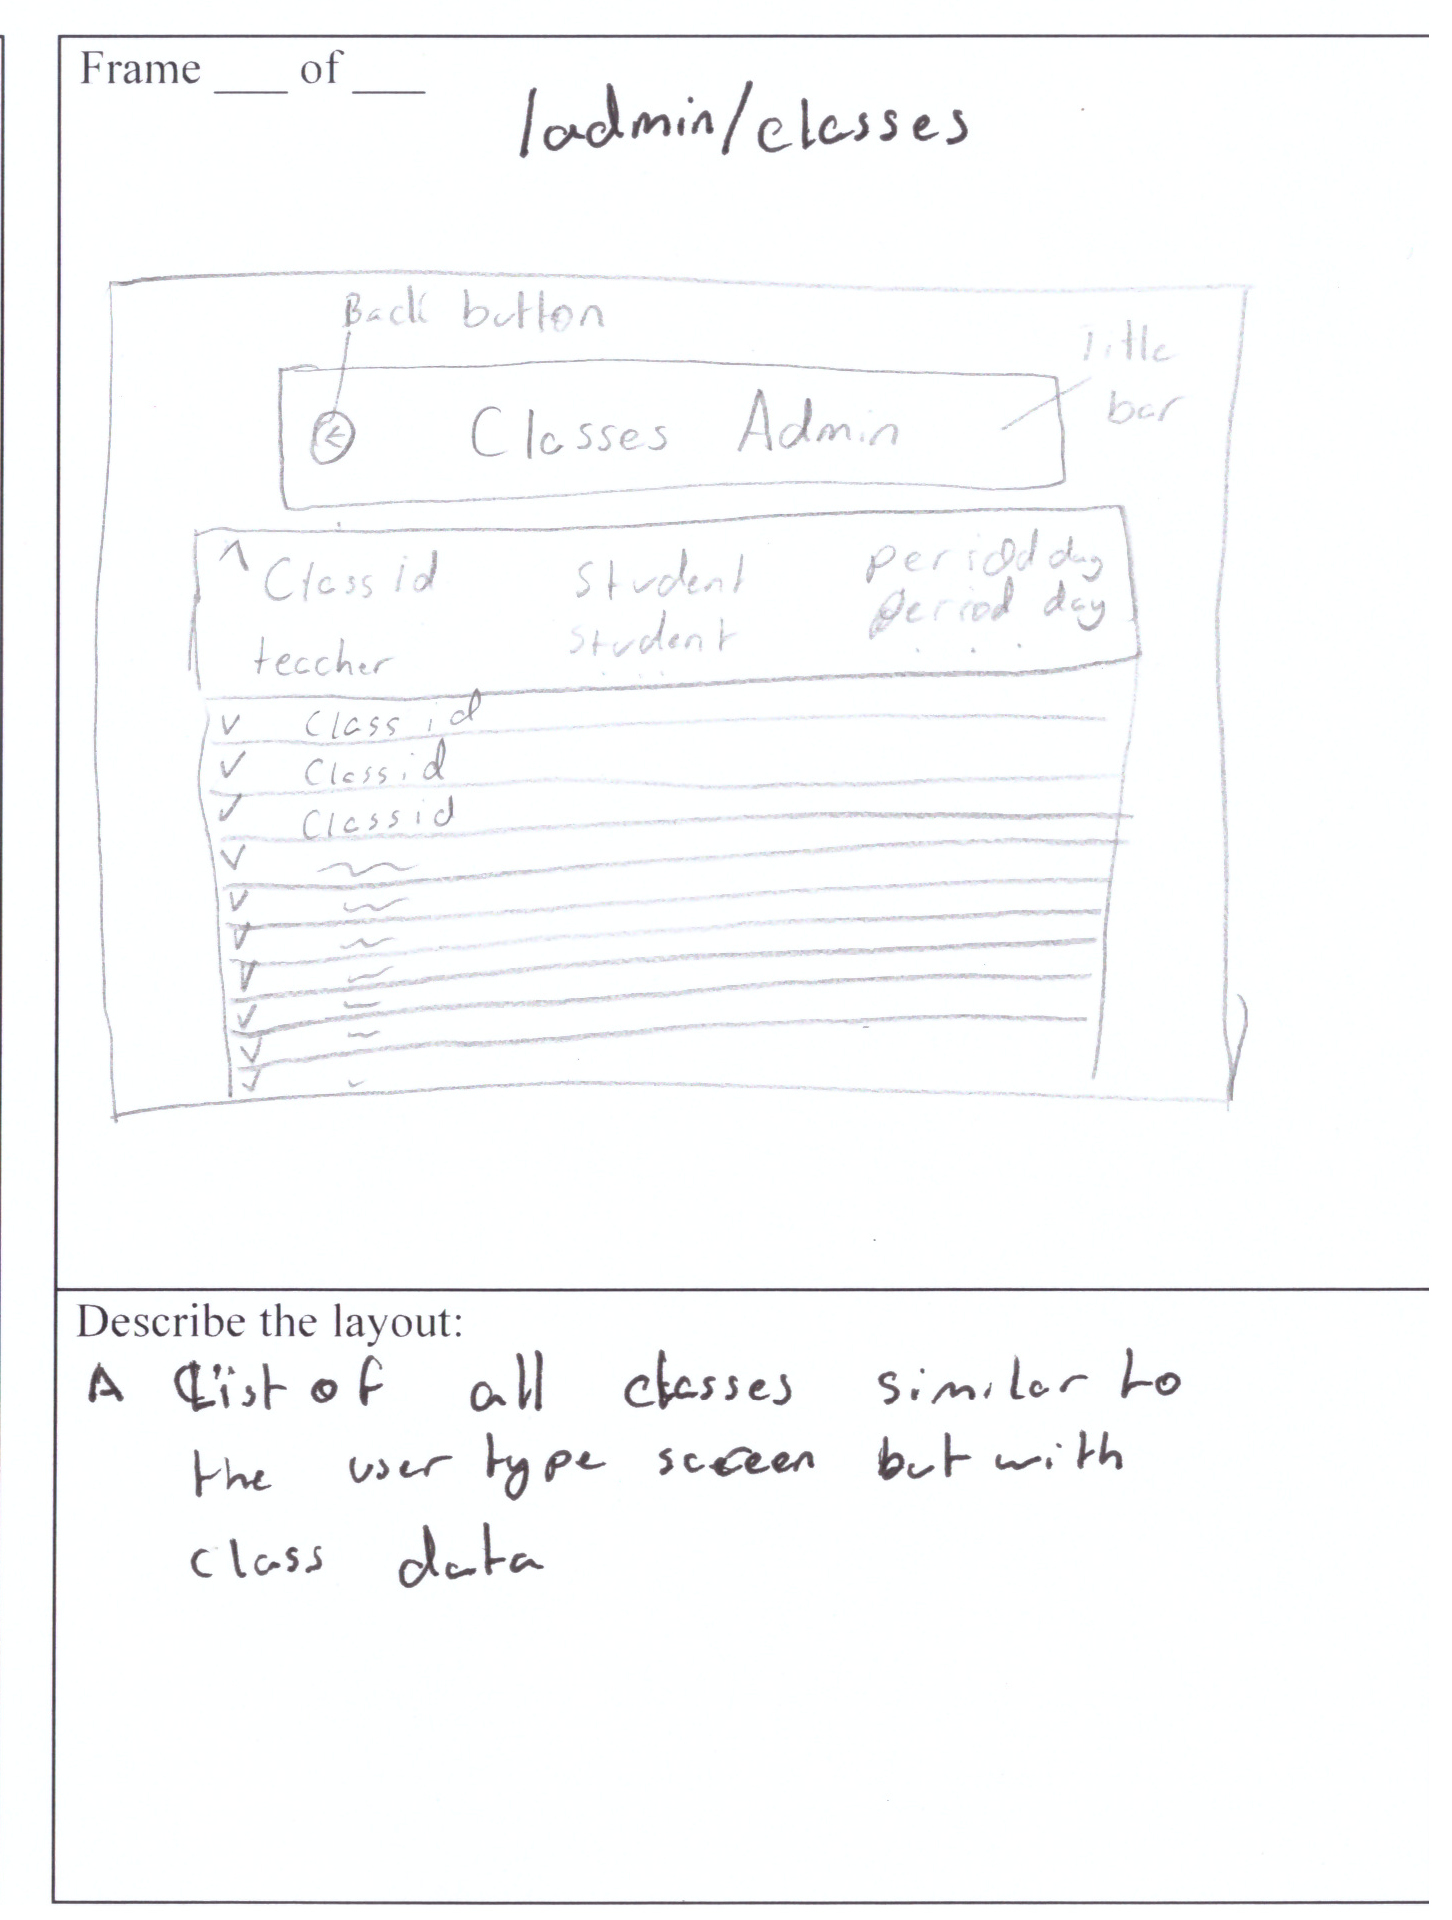 Frame ___ of ___
/admin/classes
Back button
Title
bar
Classes Admin
Class id Student period day
teacher Student period day
Class id
Class id
Class id
Describe the layout:
A List of all classes similar to
the user type screen but with
class data